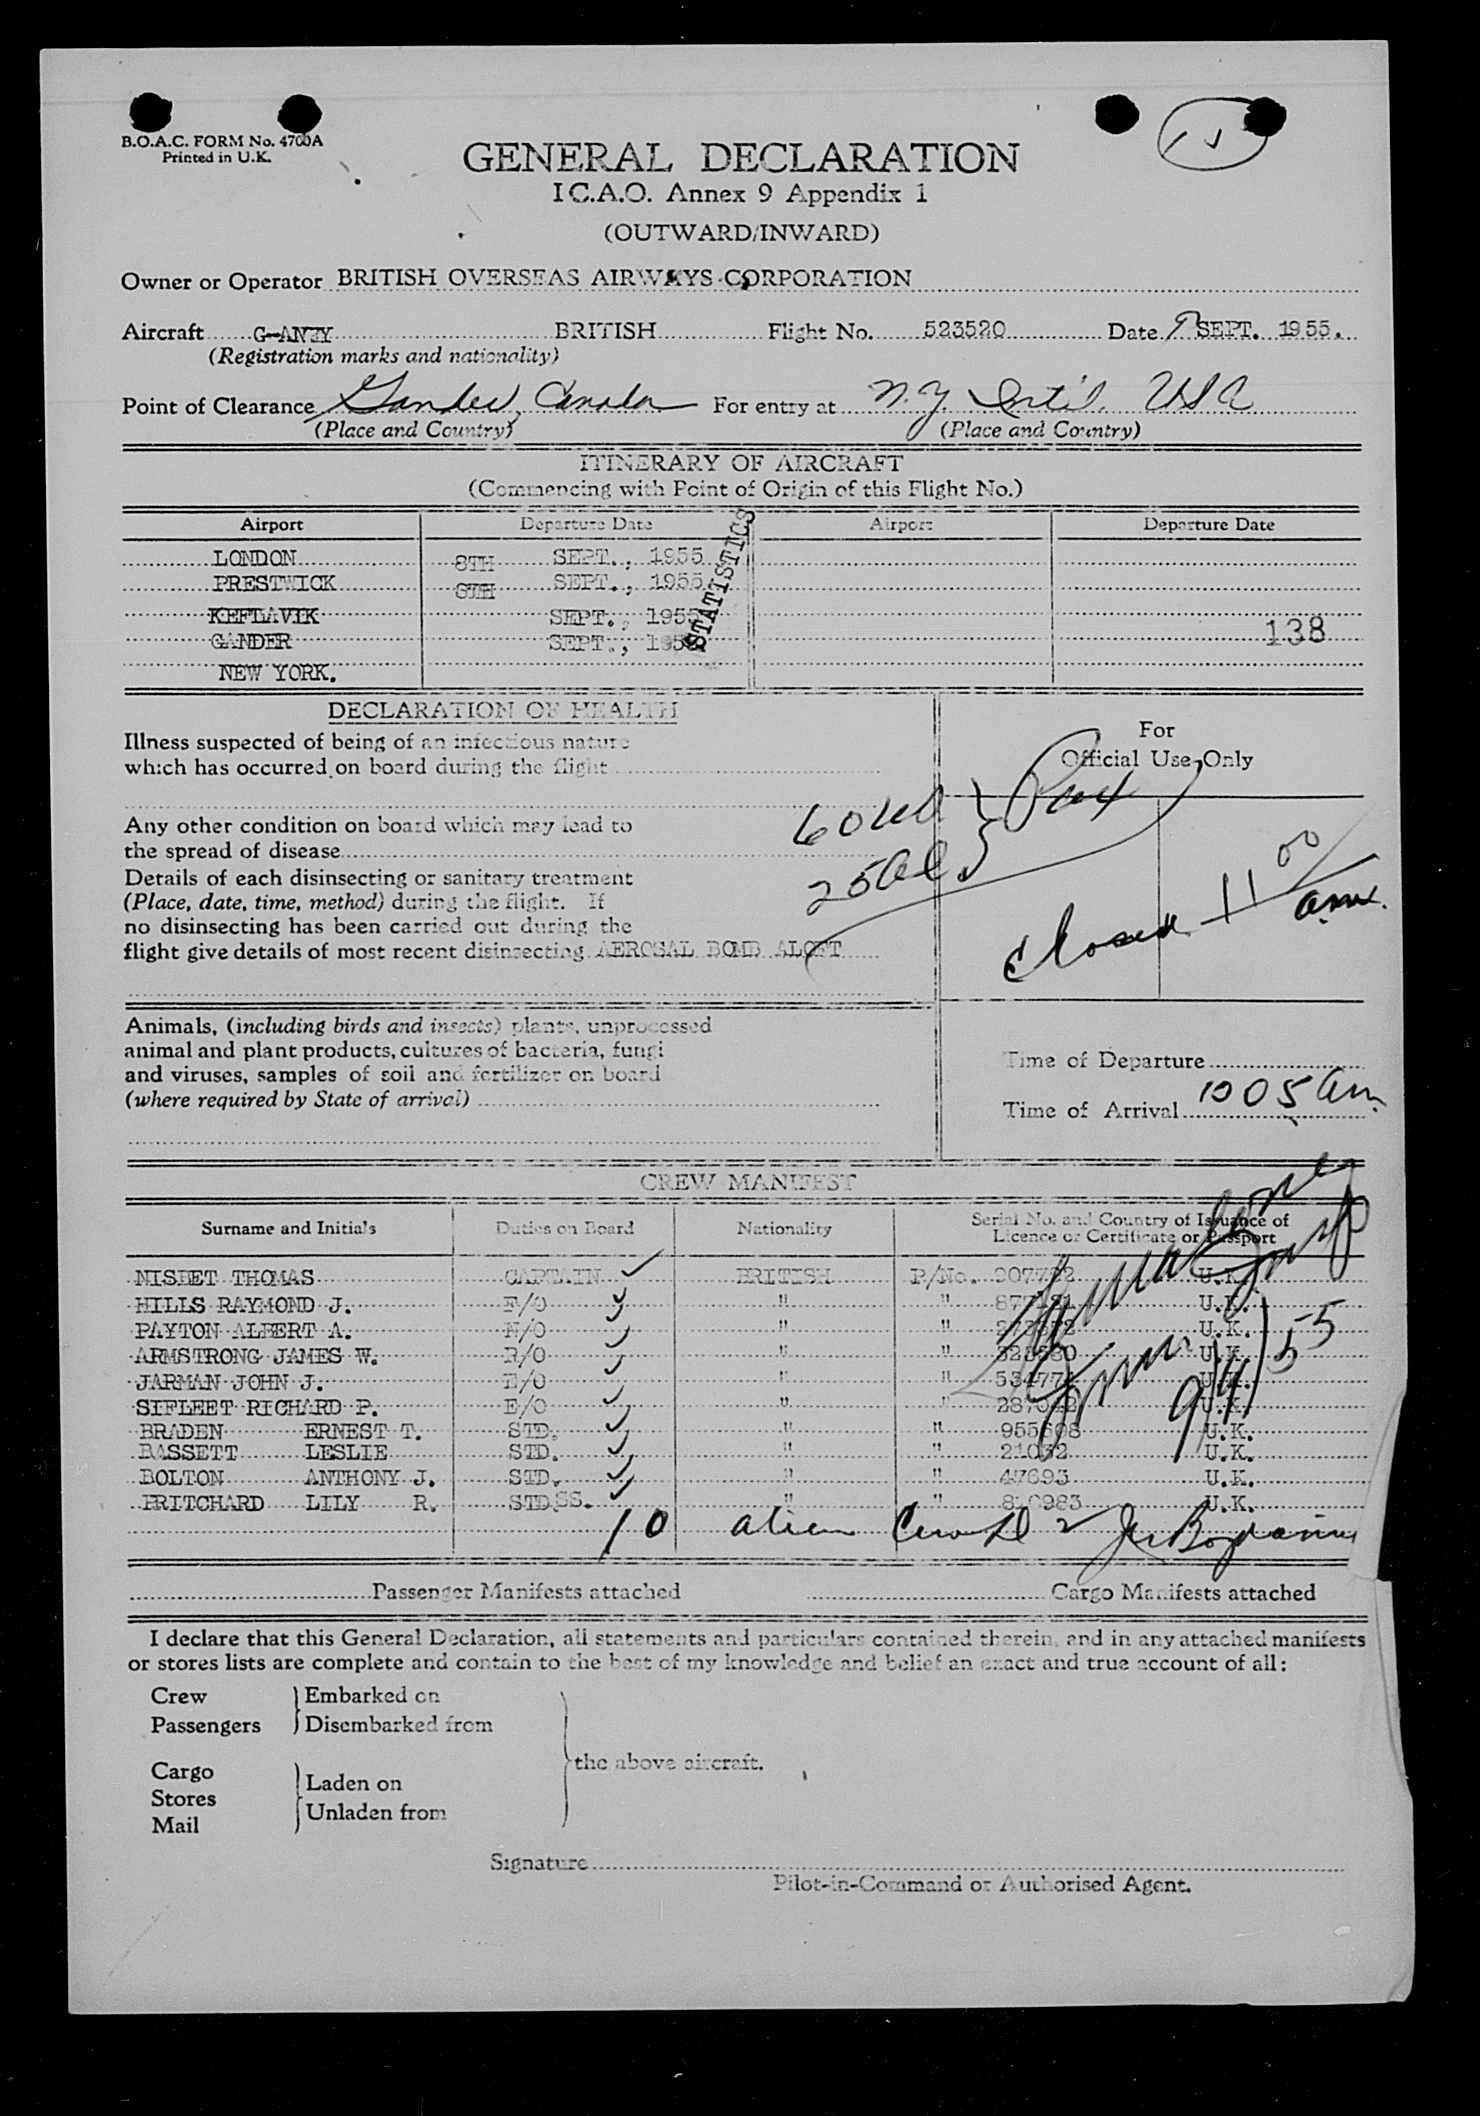 B.O.A.C. FORM No. 4700A
Printed in U.K.
GENERAL DECLARATION
I C.A.O. Annex 9 Appendix 1
(OUTWARD/INWARD)
Owner or Operator BRITISH OVERSEAS AIRWAYS CORPORATION
Aircraft BRITISH Flight No. 523520 Date 9 SEPT. 1955.
(Registration marks and nationality)
Point of Clearance Gander, Canada For entry at N.Y. Int'l. USA
(Place and Country) (Place and Country)
ITINERARY OF AIRCRAFT
(Commencing with Point of Origin of this Flight No.)
Airport Departure Date Airport Departure Date
LONDON 8TH SEPT., 1955
PRESTWICK 8TH SEPT., 1955
KEFLAVIK SEPT., 1955
GANDER SEPT., 1955
NEW YORK.
STATISTICS
138
DECLARATION OF HEALTH
Illness suspected of being of an infectious nature
which has occurred on board during the flight
Any other condition on board which may lead to
the spread of disease
Details of each disinsecting or sanitary treatment
(Place, date, time, method) during the flight. If
no disinsecting has been carried out during the
flight give details of most recent disinsecting AEROSAL BOMB ALOFT
For
Official Use Only
Pax
Closed 11 00 am.
Animals, (including birds and insects) plants, unprocessed
animal and plant products, cultures of bacteria, fungi
and viruses, samples of soil and fertilizer on board
(where required by State of arrival)
Time of Departure
Time of Arrival 1005 am.
CREW MANIFEST
Surname and Initials Duties on Board Nationality Serial No. and Country of Issuance of
Licence or Certificate or Passport
NISBET THOMAS CAPTAIN BRITISH P/No. U.K.
HILLS RAYMOND J. F/O " " U.K.
PAYTON ALBERT A. N/O " " U.K.
ARMSTRONG JAMES W. R/O " " U.K.
JARMAN JOHN J. E/O " " U.K.
SIFLEET RICHARD P. E/O " " U.K.
BRADEN ERNEST T. STD. " " 955608 U.K.
BASSETT LESLIE STD. " " 21032 U.K.
BOLTON ANTHONY J. STD. " " 47693 U.K.
PRITCHARD LILY R. STDSS. " " U.K.
10 alien
Passenger Manifests attached Cargo Manifests attached
I declare that this General Declaration, all statements and particulars contained therein, and in any attached manifests
or stores lists are complete and contain to the best of my knowledge and belief an exact and true account of all:
Crew
Passengers
Embarked on
Disembarked from
Cargo
Stores
Mail
Laden on
Unladen from
the above aircraft.
Signature
Pilot-in-Command or Authorised Agent.